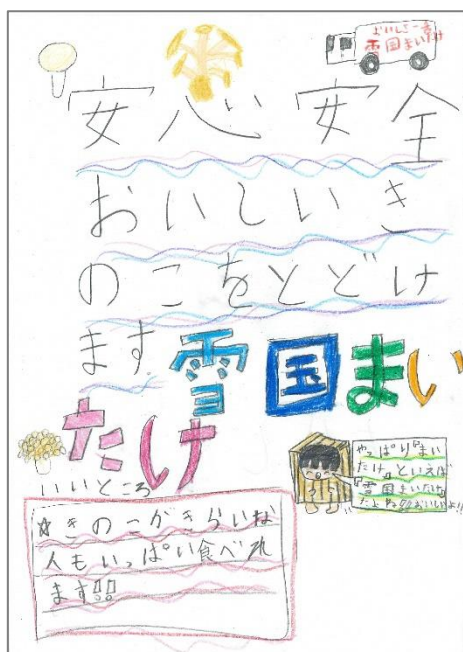 おいしさ一番
雪国まいたけ
安心安全
おいしいき
のこをとどけ
ます
雪国まい
たけ
いいところ
やっぱり『まい
たけ』といえば
『雪国まいたけ』
だよね!!おいしいよ!!
☆きのこがきらいな
人もいっぱい食べれ
ます!!